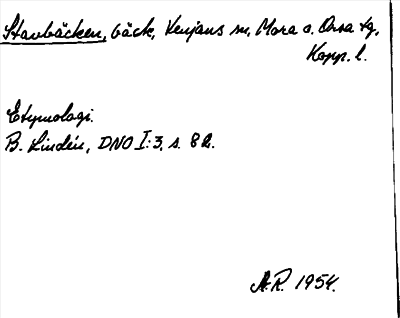 Stavbäcken, bäck, Venjans sn, Mora o. Orsa tg,
Kopp. l.
Etymologi.
B. Lindén, DNO I:3, s. 82.
A.R. 1954.